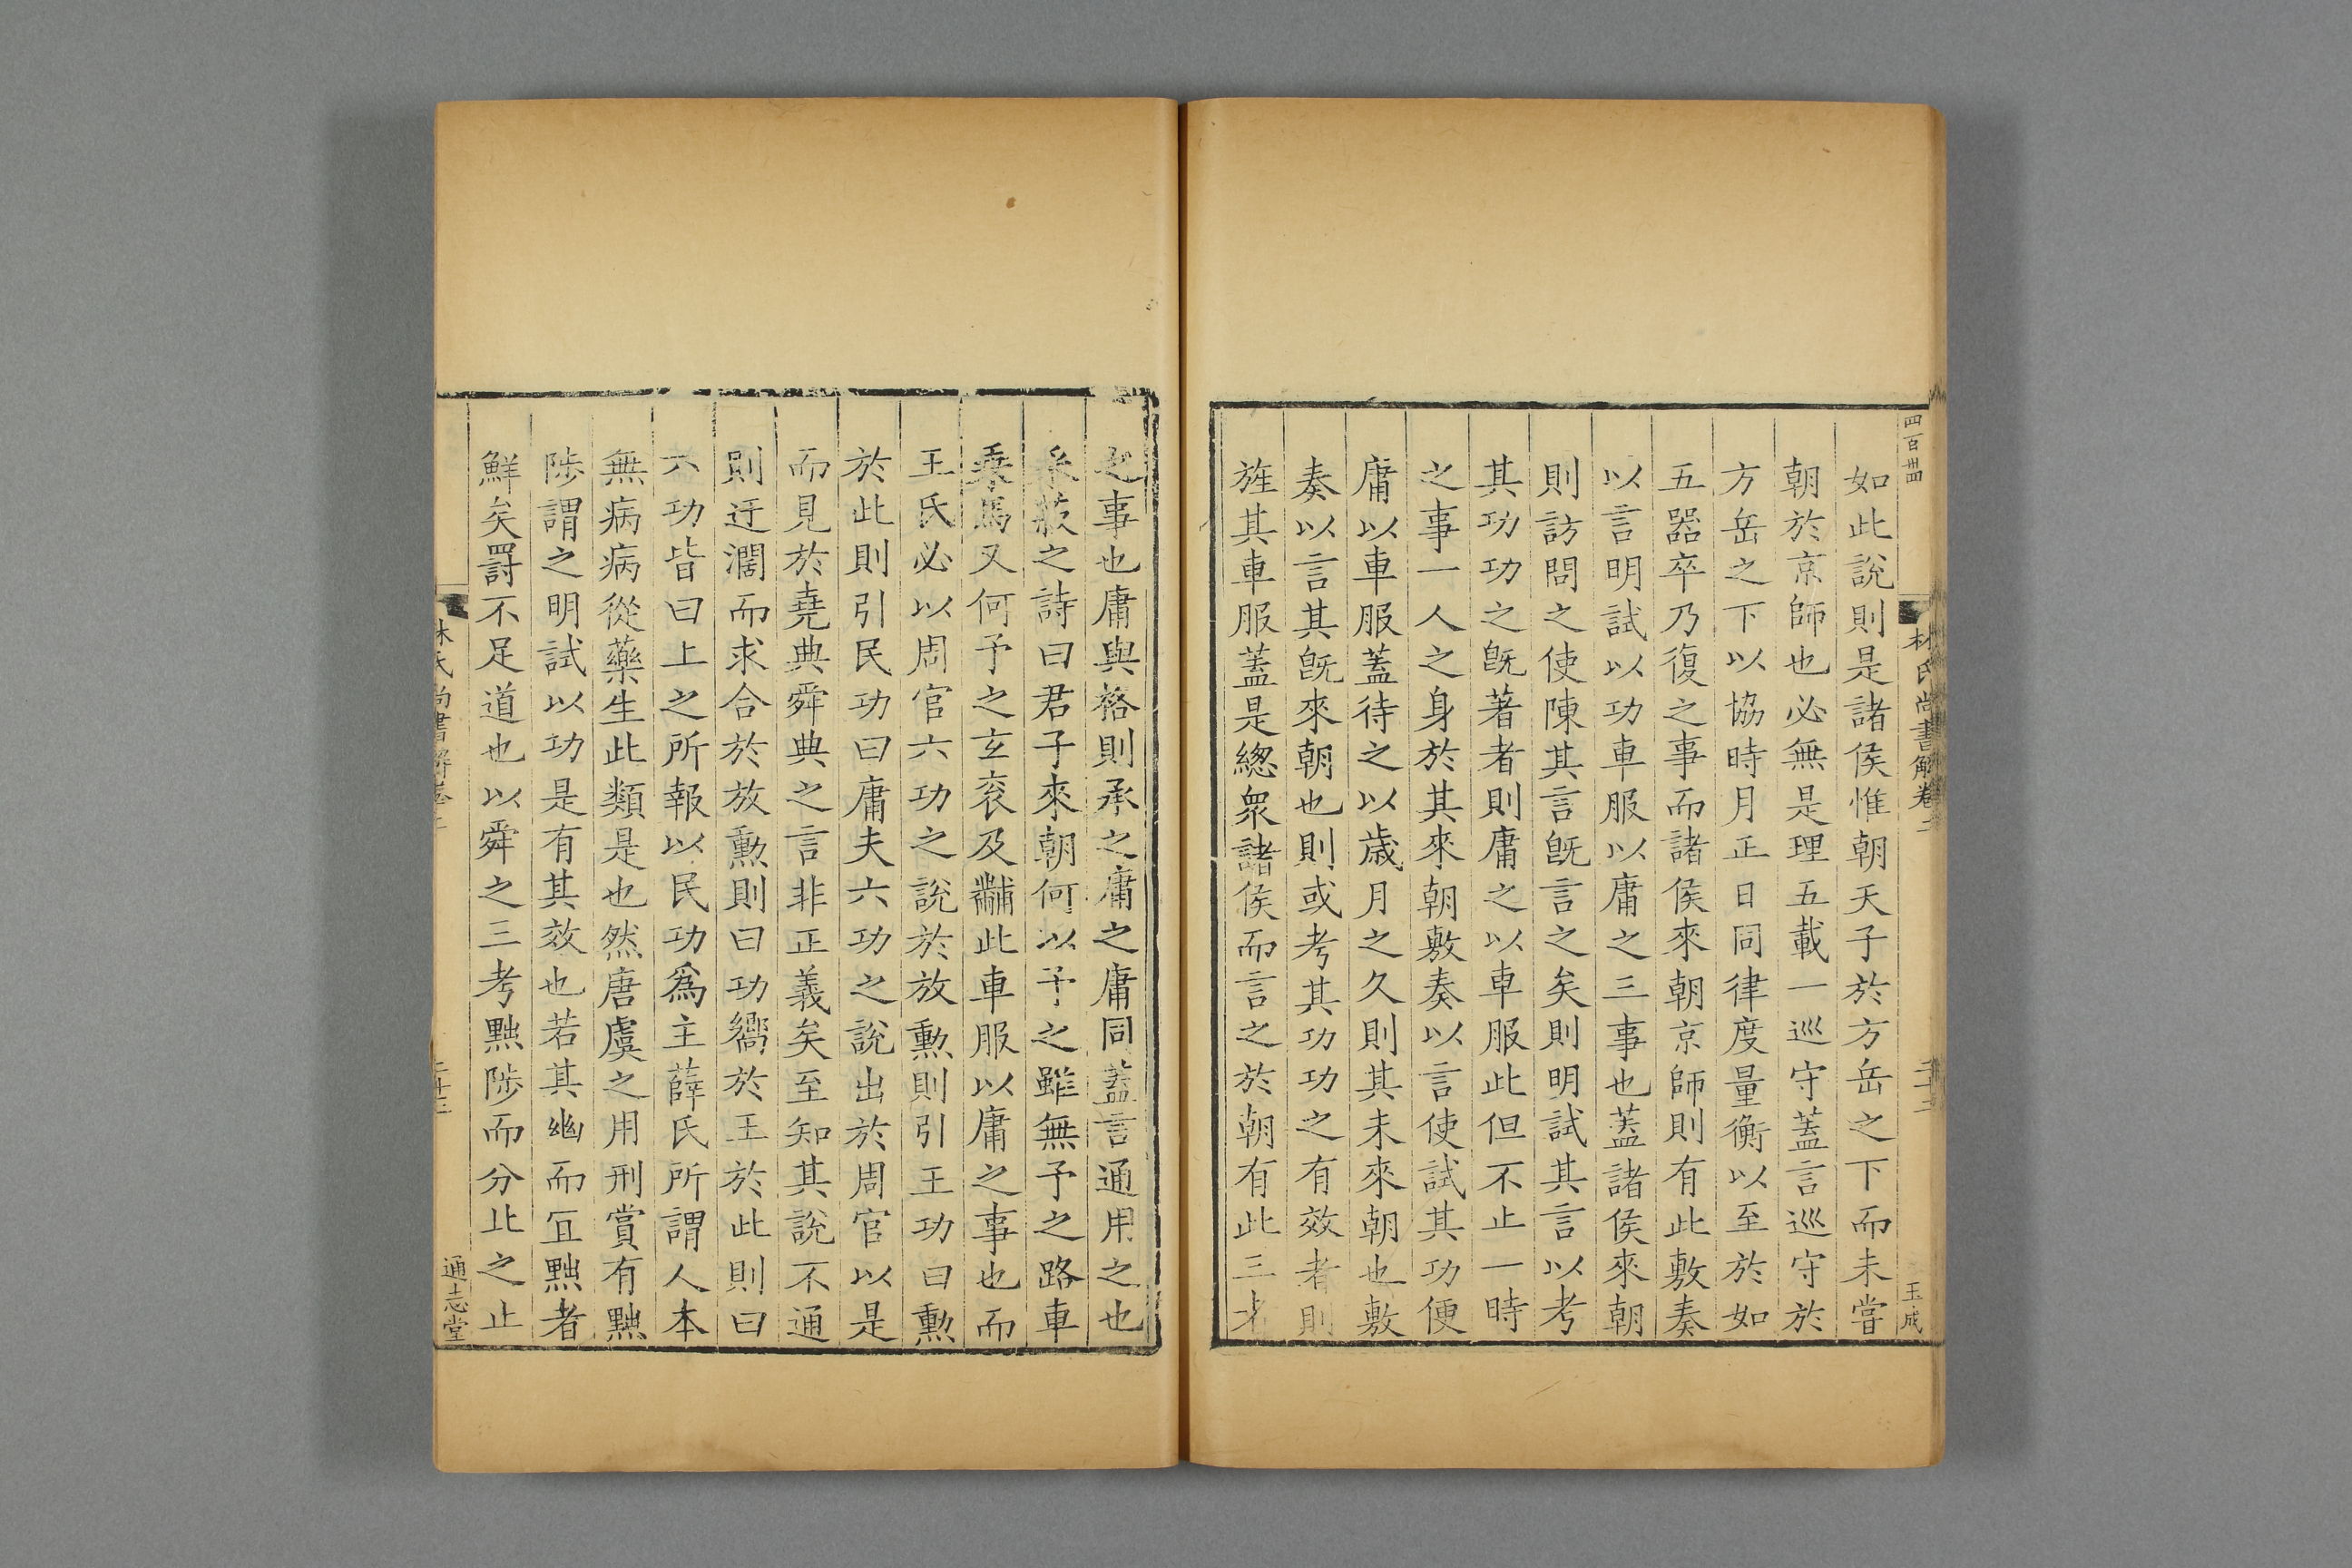 四百卌
林氏尚書解卷二
玉成
如此說則是諸侯惟朝天子於方岳之下而未嘗
朝於京師也必無是理五載一巡守蓋言巡守於
方岳之下以協時月正日同律度量衡以至於如
五器卒乃復之事而諸侯來朝京師則有此敷奏
以言明試以功車服以庸之三事也蓋諸侯來朝
則訪問之使陳其言旣言之矣則明試其言以考
其功功之旣著者則庸之以車服此但不止一時
之事一人之身於其來朝敷奏以言使試其功便
庸以車服蓋待之以歲月之久則其未來朝也敷
奏以言其旣來朝也則或考其功功之有效者則
旌其車服蓋是緫衆諸侯而言之於朝有此三
之事也庸與格則承之庸之庸同蓋言通用之也
采菽之詩曰君子來朝何以予之雖無予之路車
乘馬又何予之玄衮及黼此車服以庸之事也而
王氏必以周官六功之說於放勳則引王功曰勳
於此則引民功曰庸夫六功之說出於周官以是
而見於堯典舜典之言非正義矣至知其說不通
則迂濶而求合於放勳則曰功嚮於王於此則曰
六功皆曰上之所報以民功爲主薛氏所謂人本
無病病從藥生此類是也然唐虞之用刑賞有黜
陟謂之明試以功是有其效也若其幽而冝黜者
鮮矣罸不足道也以舜之三考黜陟而分北之止
林氏尚書解卷二
通志堂